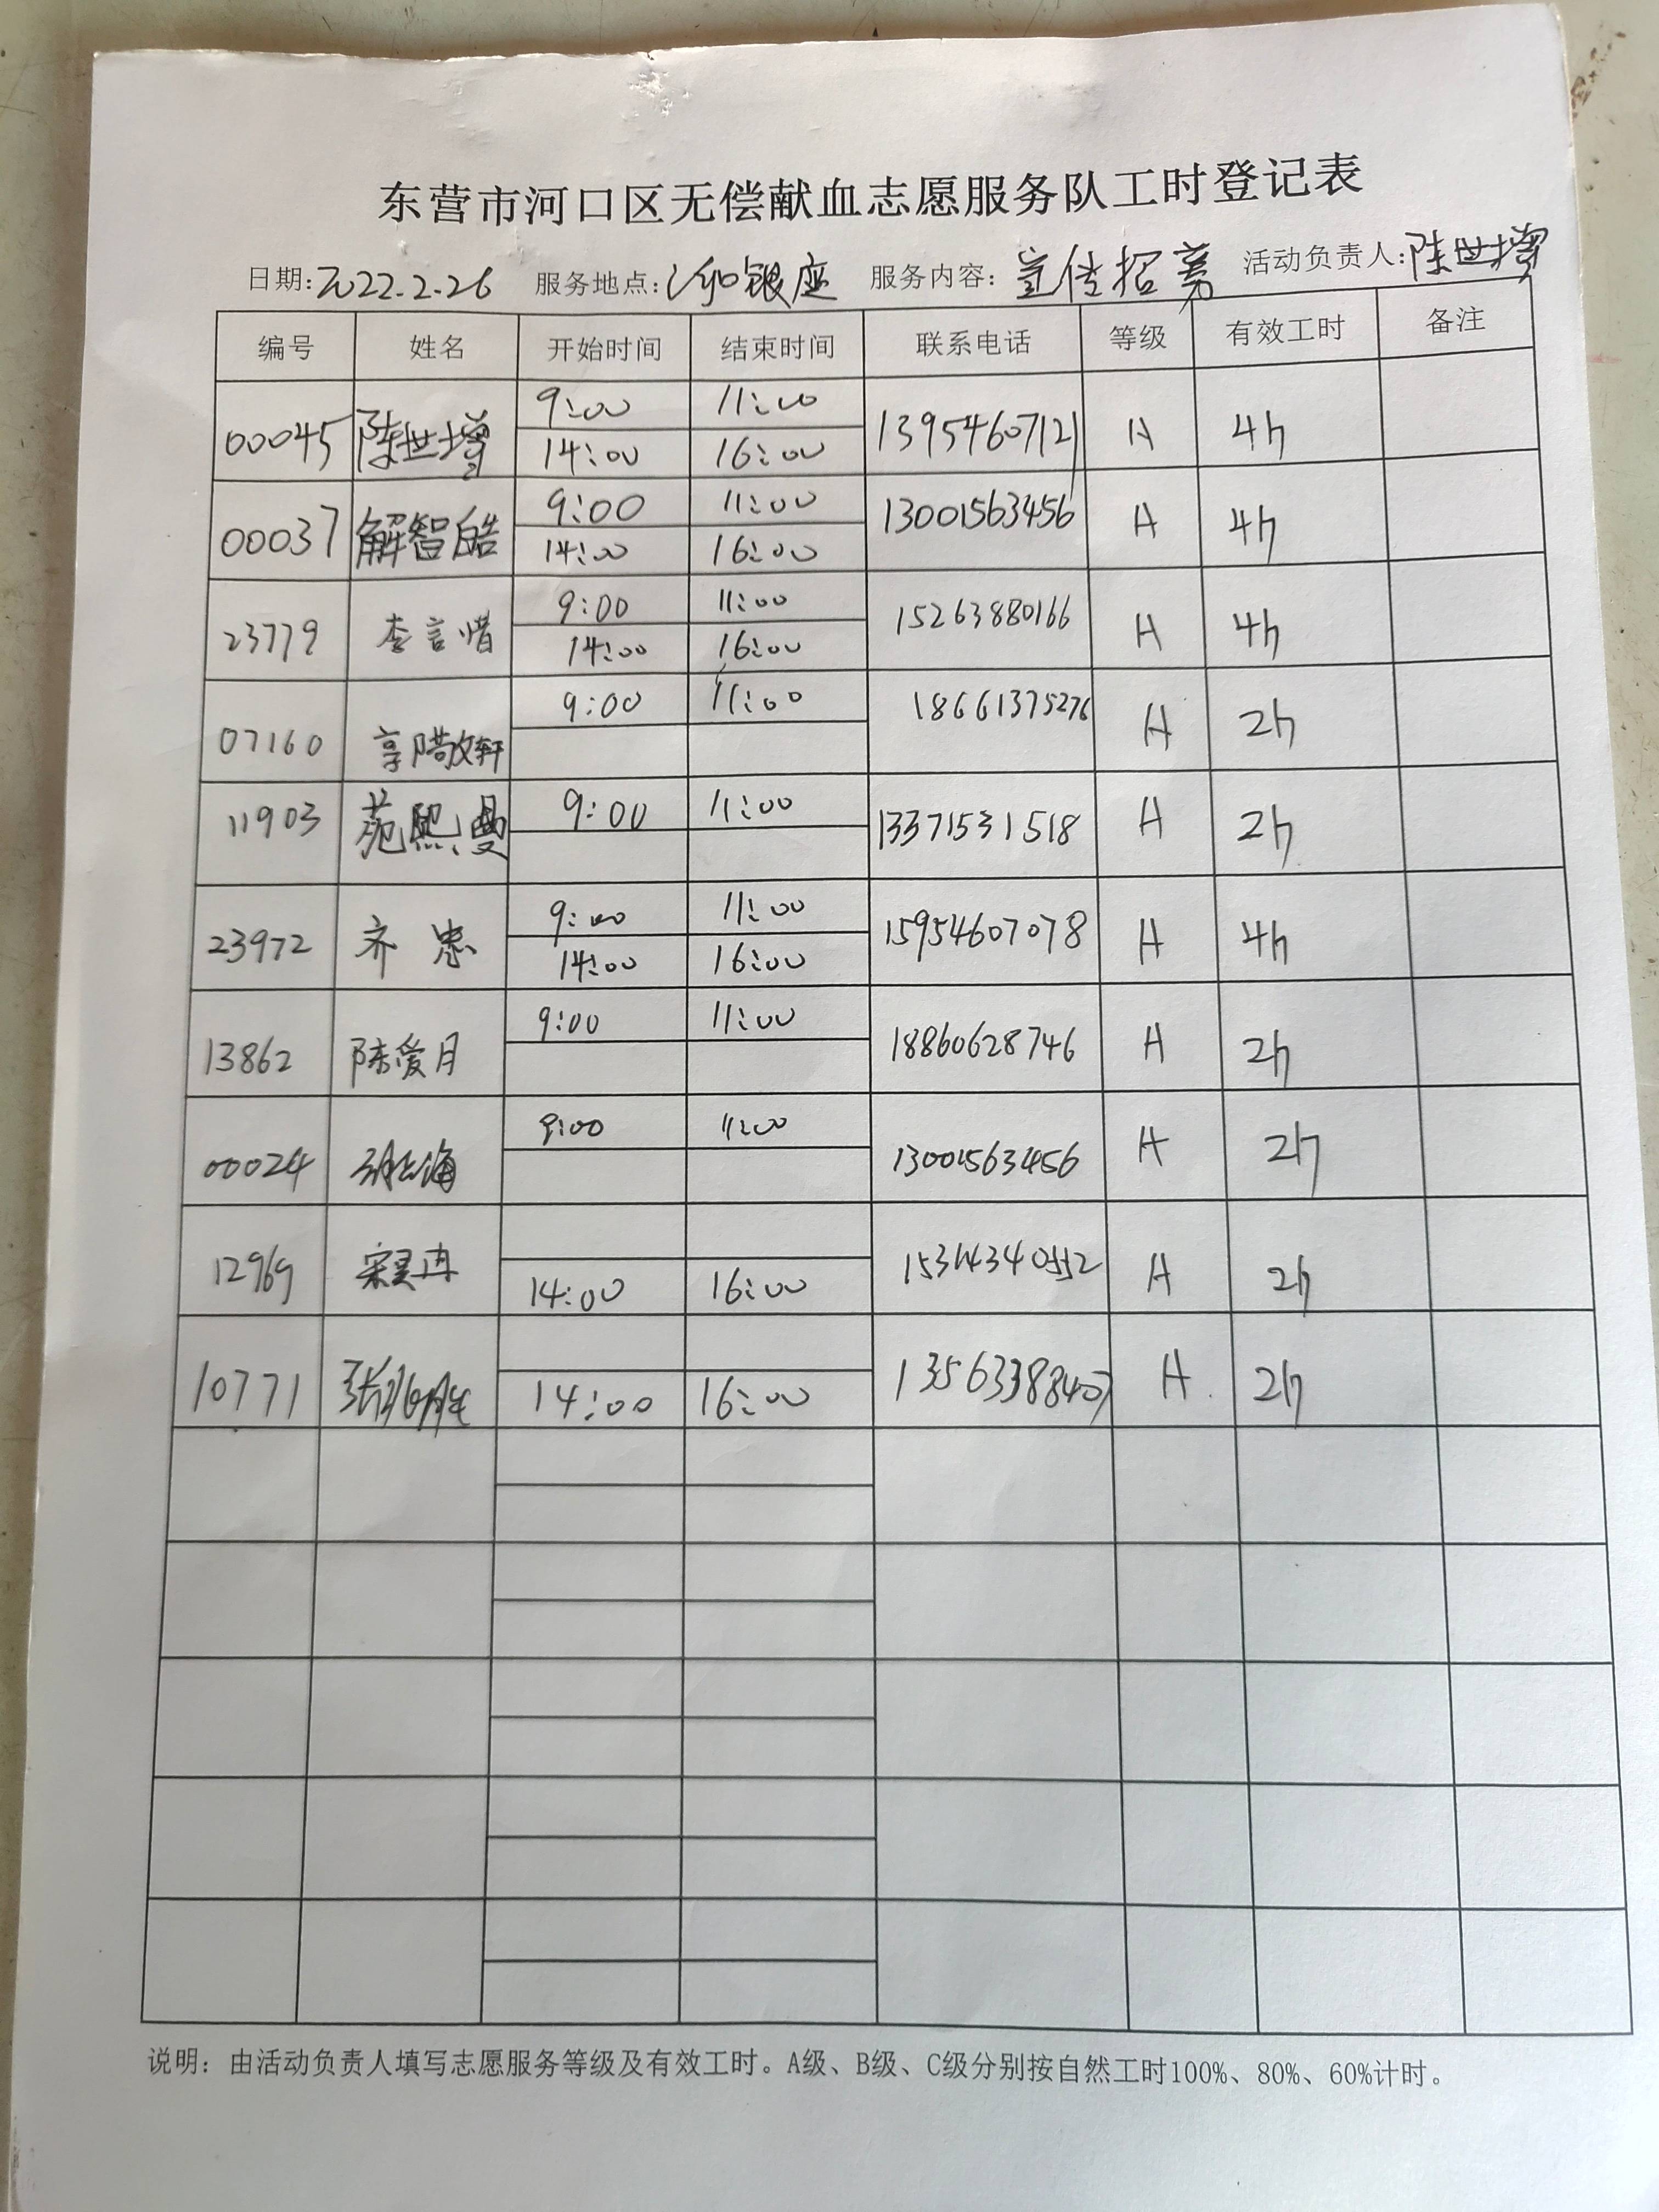 东营市河口区无偿献血志愿服务队工时登记表
日期:2022.2.26 服务地点: 银座 服务内容: 宣传招募 活动负责人:陈世增
编号 姓名 开始时间 结束时间 联系电话 等级 有效工时 备注
00045 陈世增 9:00 11:00 13954607121 A 4h
14:00 16:00
00037 解智皓 9:00 11:00 13001563456 A 4h
14:00 16:00
23779 李言惜 9:00 11:00 15263880166 A 4h
14:00 16:00
07160 9:00 11:00 18661375276 A 2h
11903 苑熙曼 9:00 11:00 13371531518 A 2h
23972 齐忠 9:00 11:00 15954607078 A 4h
14:00 16:00
13862 陈爱月 9:00 11:00 18860628746 A 2h
00024 9:00 11:00 13001563456 A 2h
12969 14:00 16:00 A 2h
10771 14:00 16:00 13563388407 A 2h
说明：由活动负责人填写志愿服务等级及有效工时。A级、B级、C级分别按自然工时100%、80%、60%计时。